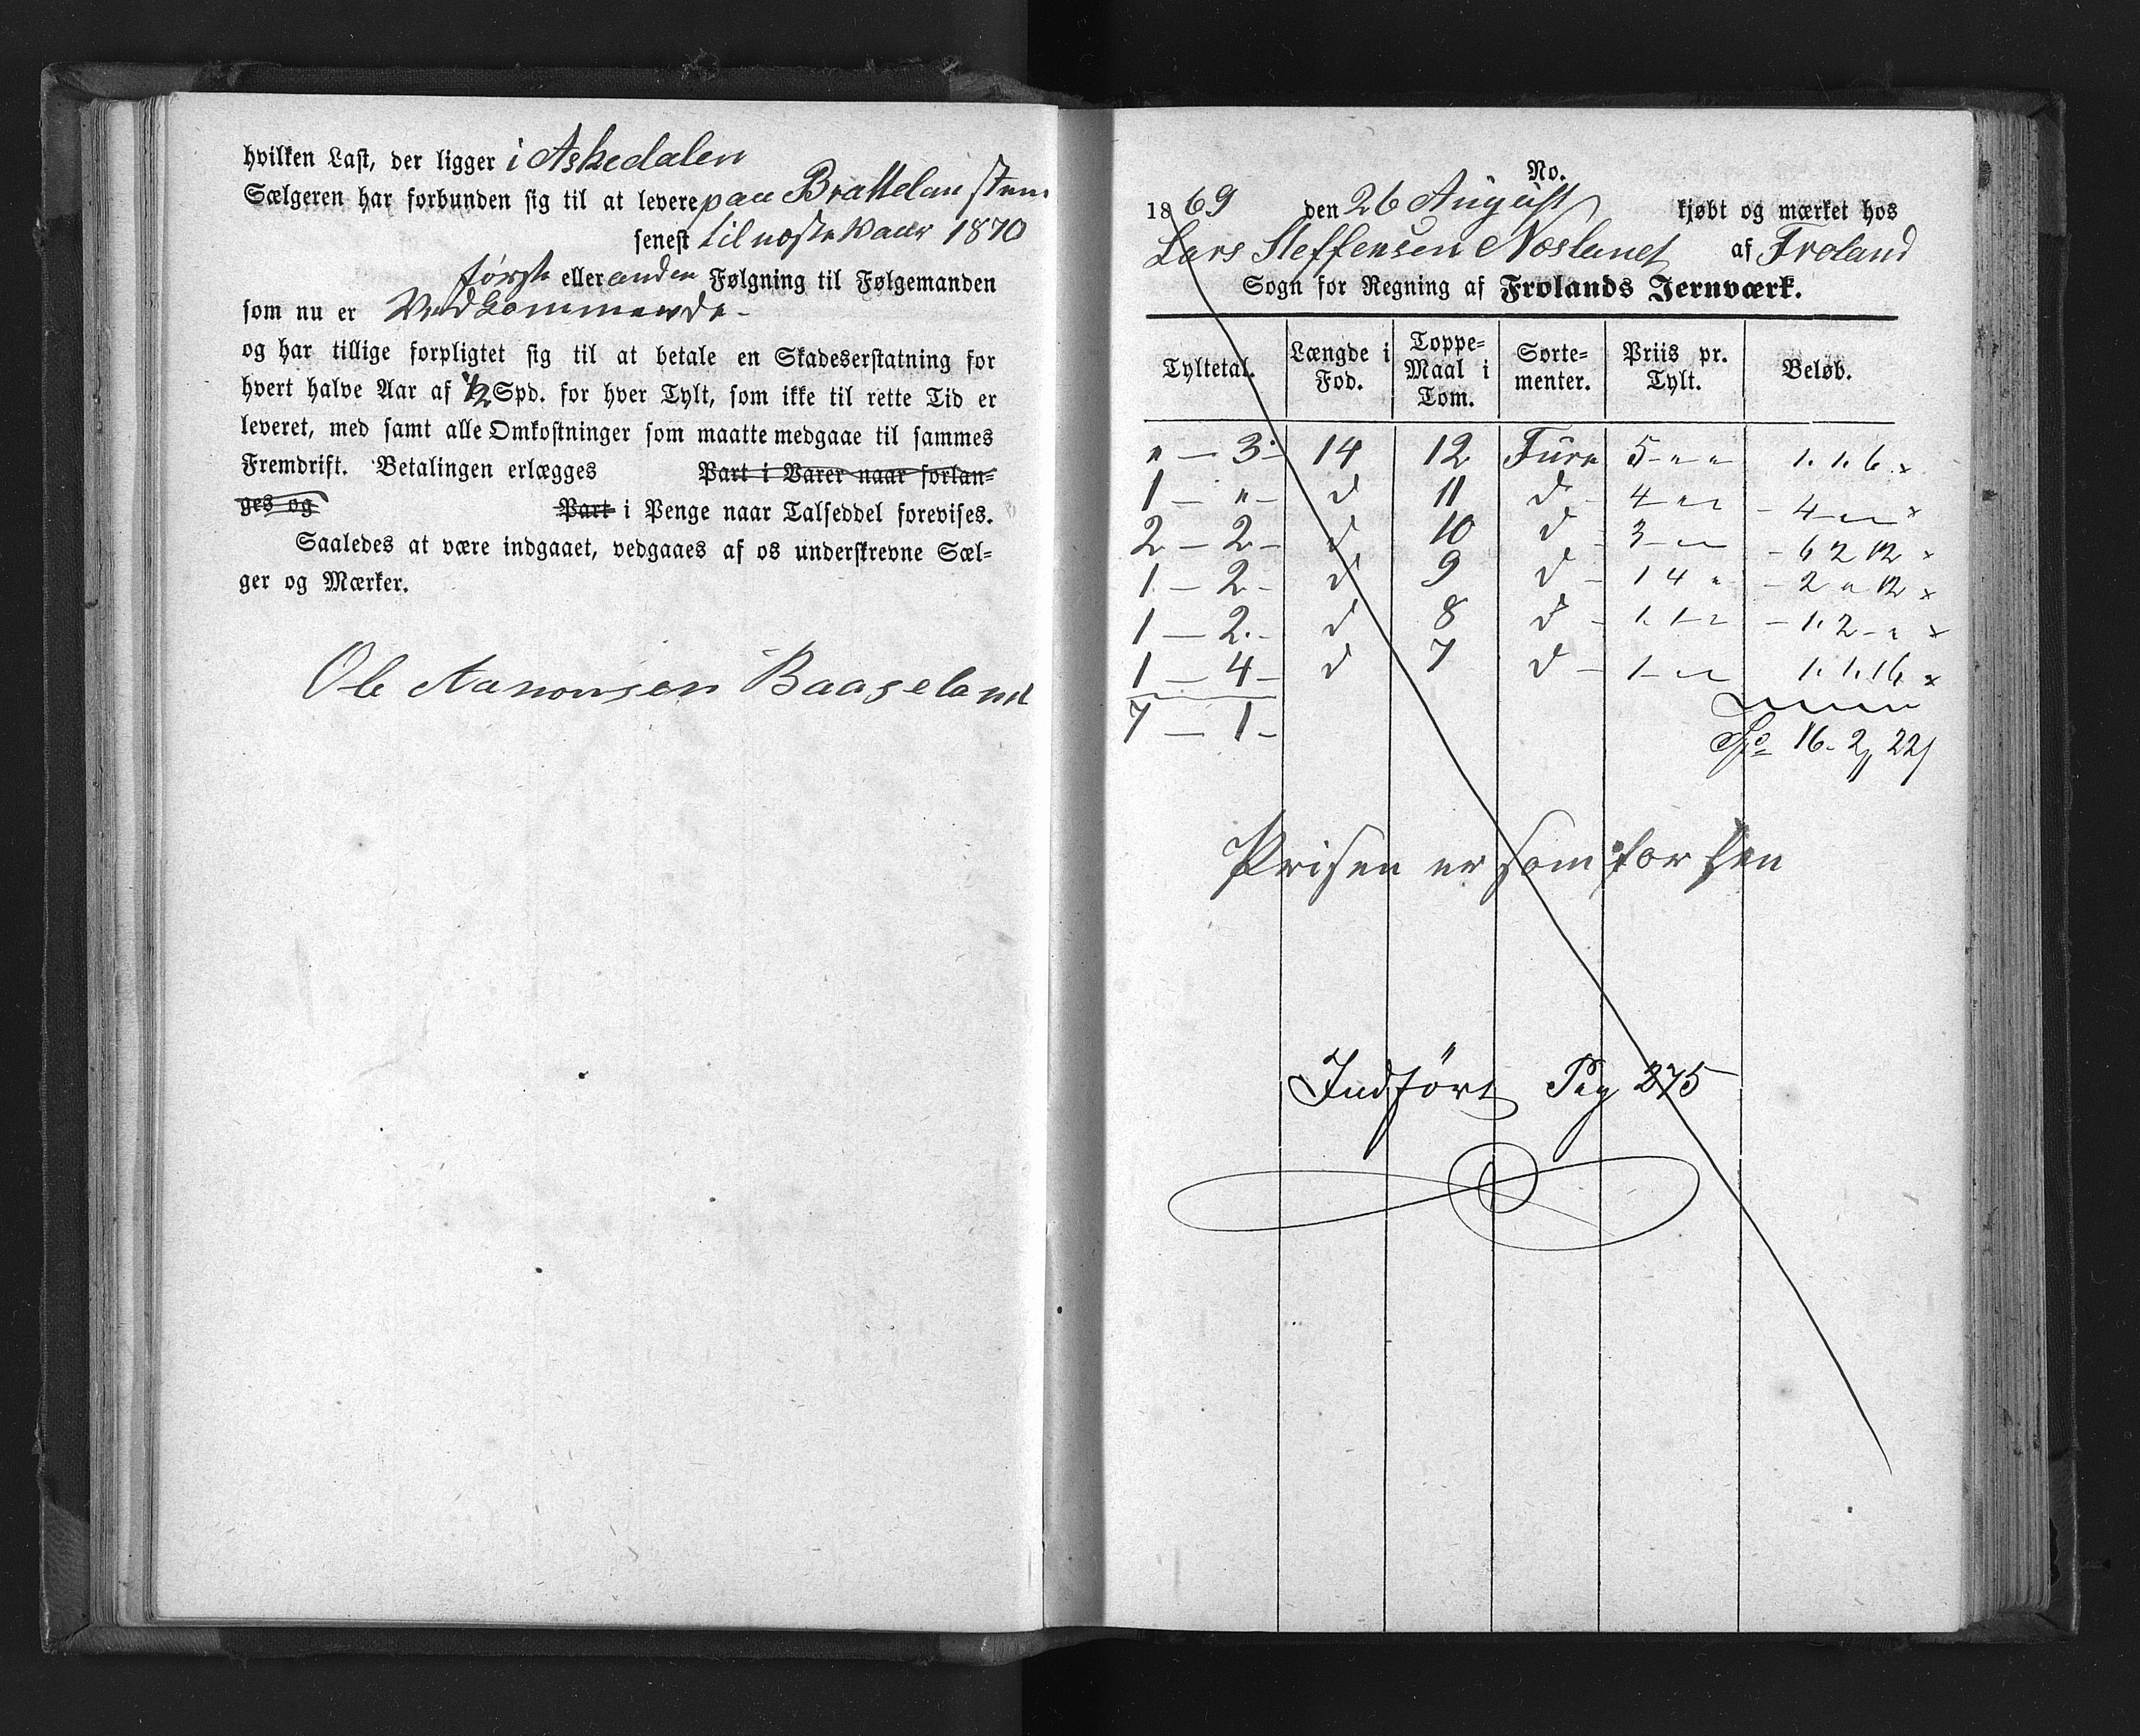 hvilken Last, der ligger i Askedalen
Sælgeren har forbunden sig til at levere paa Brattelan
senest til næste Vaar 1870
første eller anden Følgning til Følgemanden
som nu er Vedkommende -
og har tillige forpligtet sig til at betale en Skadeserstatning for
hvert halve Aar af 1/2 Spd. for hver Tylt, som ikke til rette Tid er
leveret, med samt alle Omkostninger som maatte medgaae til sammes
Fremdrift. Betalingen erlægges Part i Varer naar forlan-
ges og Part i Penge naar Talseddel forevises.
Saaledes at være indgaaet, vedgaaes af os underskrevne Sæl-
ger og Mærker.
Ole Aanonsen Baaseland
No.
1869 den 26 August kjøbt og mærket hos
Lars Steffensen Næsland af Froland
Sogn for Regning af Frolands Jernværk.
Tyltetal. Længde i Fod. Toppe-Maal i Tom. Sorte-menter. Priis pr. Tylt. Beløb.
" — 3 - 14 12 Furu 5 - " " 1. 1. 6 x
1 — " - d 11 d - 4 - " " - 4 - " " x
2 — 2 - d 10 d - 3 - " " - 6 2 12 x
1 — 2 - d 9 d - 1 4 " - 2 " 12 x
1 — 2. - d 8 d - 1. 1 - " - 1. 2 - " x
1 — 4 - d 7 d - 1 - " " 1. 1. 16 x
7 — 1 -
Spd 16 - 2 " 22 s
Prisen er som for hen
Indført Pag 275